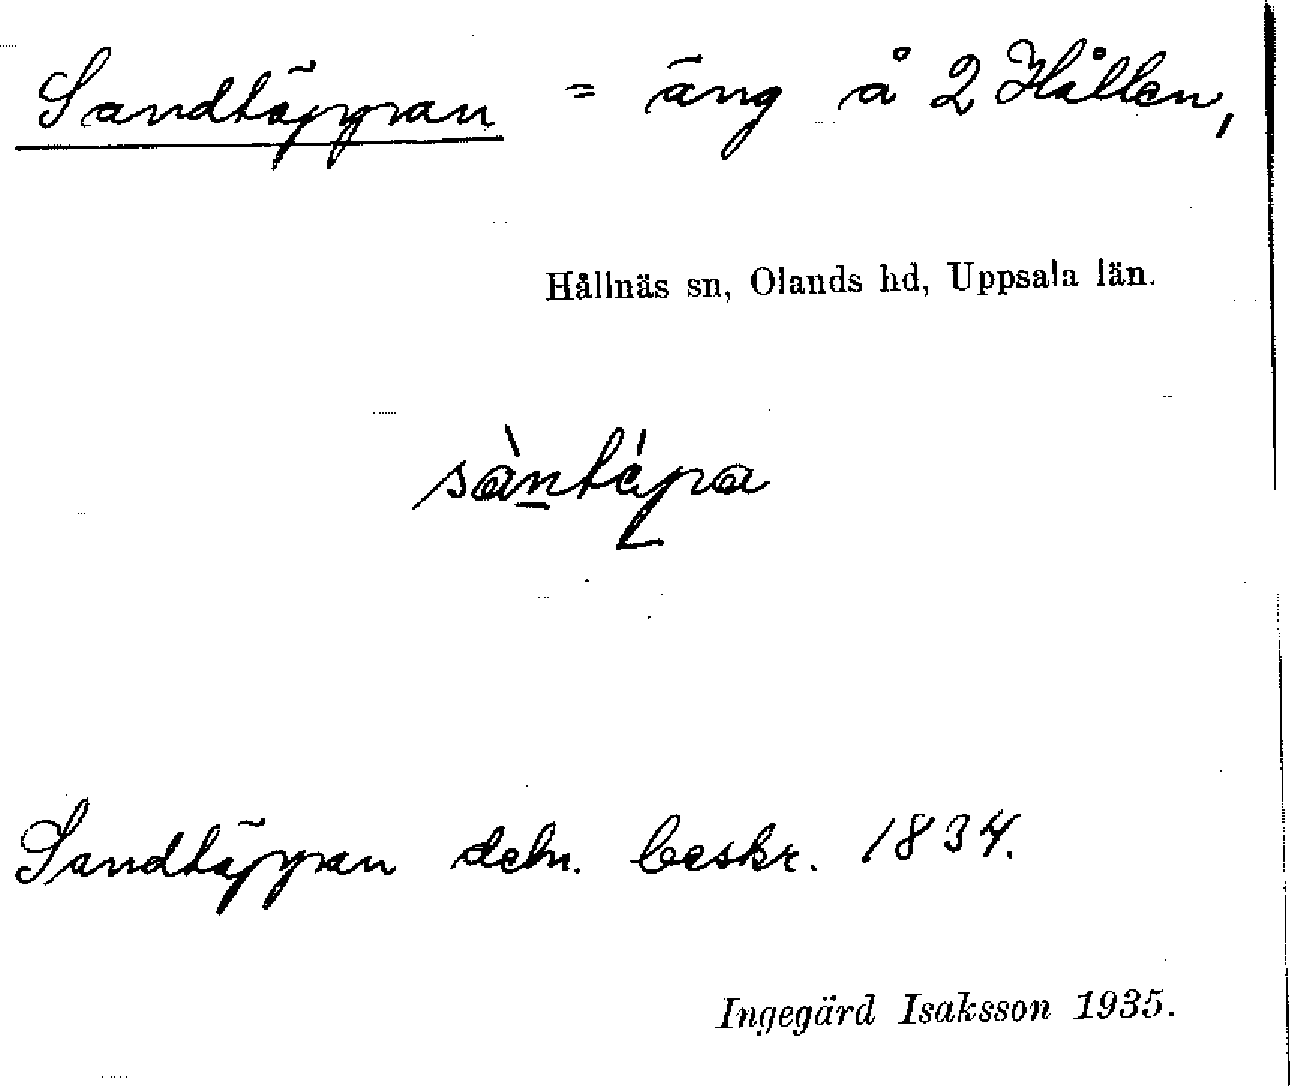 Sandtäppan = äng å 2 Hållen,
Hållnäs sn, Olands hd, Uppsala län.
sàntä́pa
Sandtäppan deln. beskr. 1834.
Ingegärd Isaksson 1935.